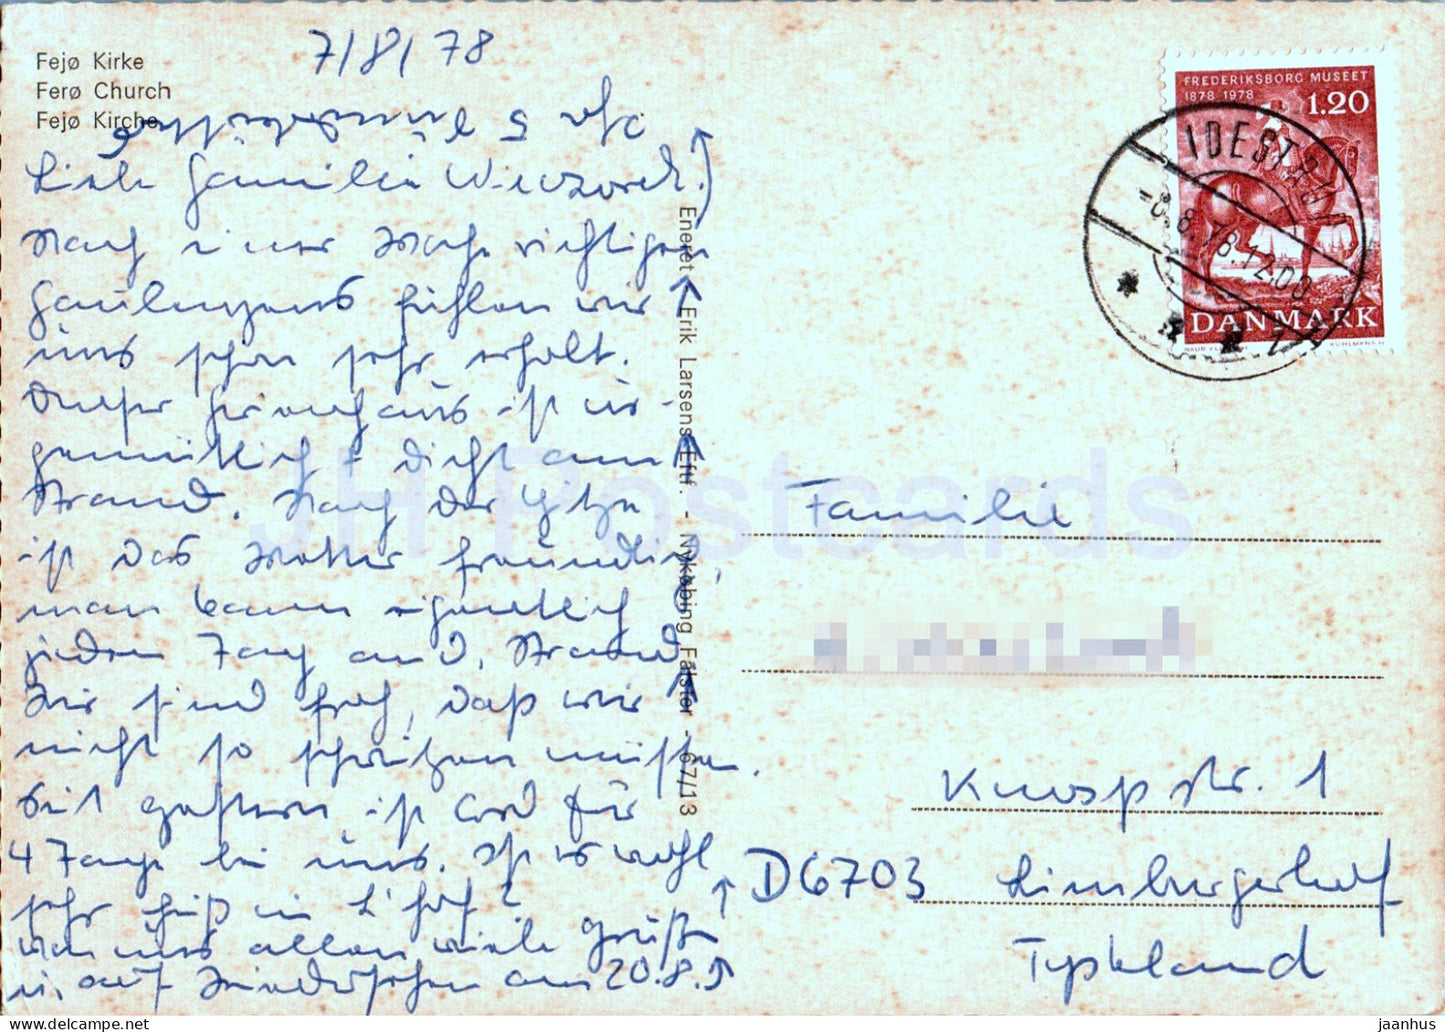 Fejø Kirke
Ferø Church
Fejø Kirche
7/8/78
Liebe Familie Wieczorek.
Nach einer Woche richtigen
Faulenzens fühlen wir
uns schon sehr erholt.
Unser Ferienhaus ist ur-
gemütlich + dicht am
Strand. Nach der Hitze
ist das Wetter freundlich,
man kann eigentlich
jeden Tag an d. Strand
Wir sind froh, daß wir
nicht so schwitzen müssen.
Seit gestern ist Cord für
4 Tage bei uns. Ist es wohl
sehr heiß in L'hof?
von uns allen viele Grüße
u. auf Wiedersehen am 20.8.
Ihr 5
Eneret Erik Larsens Eftf. - Nykøbing Falster - 67/13
FREDERIKSBORG MUSEET
1878 1978
1.20
DANMARK
IDESTRUP
-8.8.78.12.00
Familie
Knospstr. 1
D 6703 Limburgerhof
Tyskland
JH Postcards
jaanhus.com